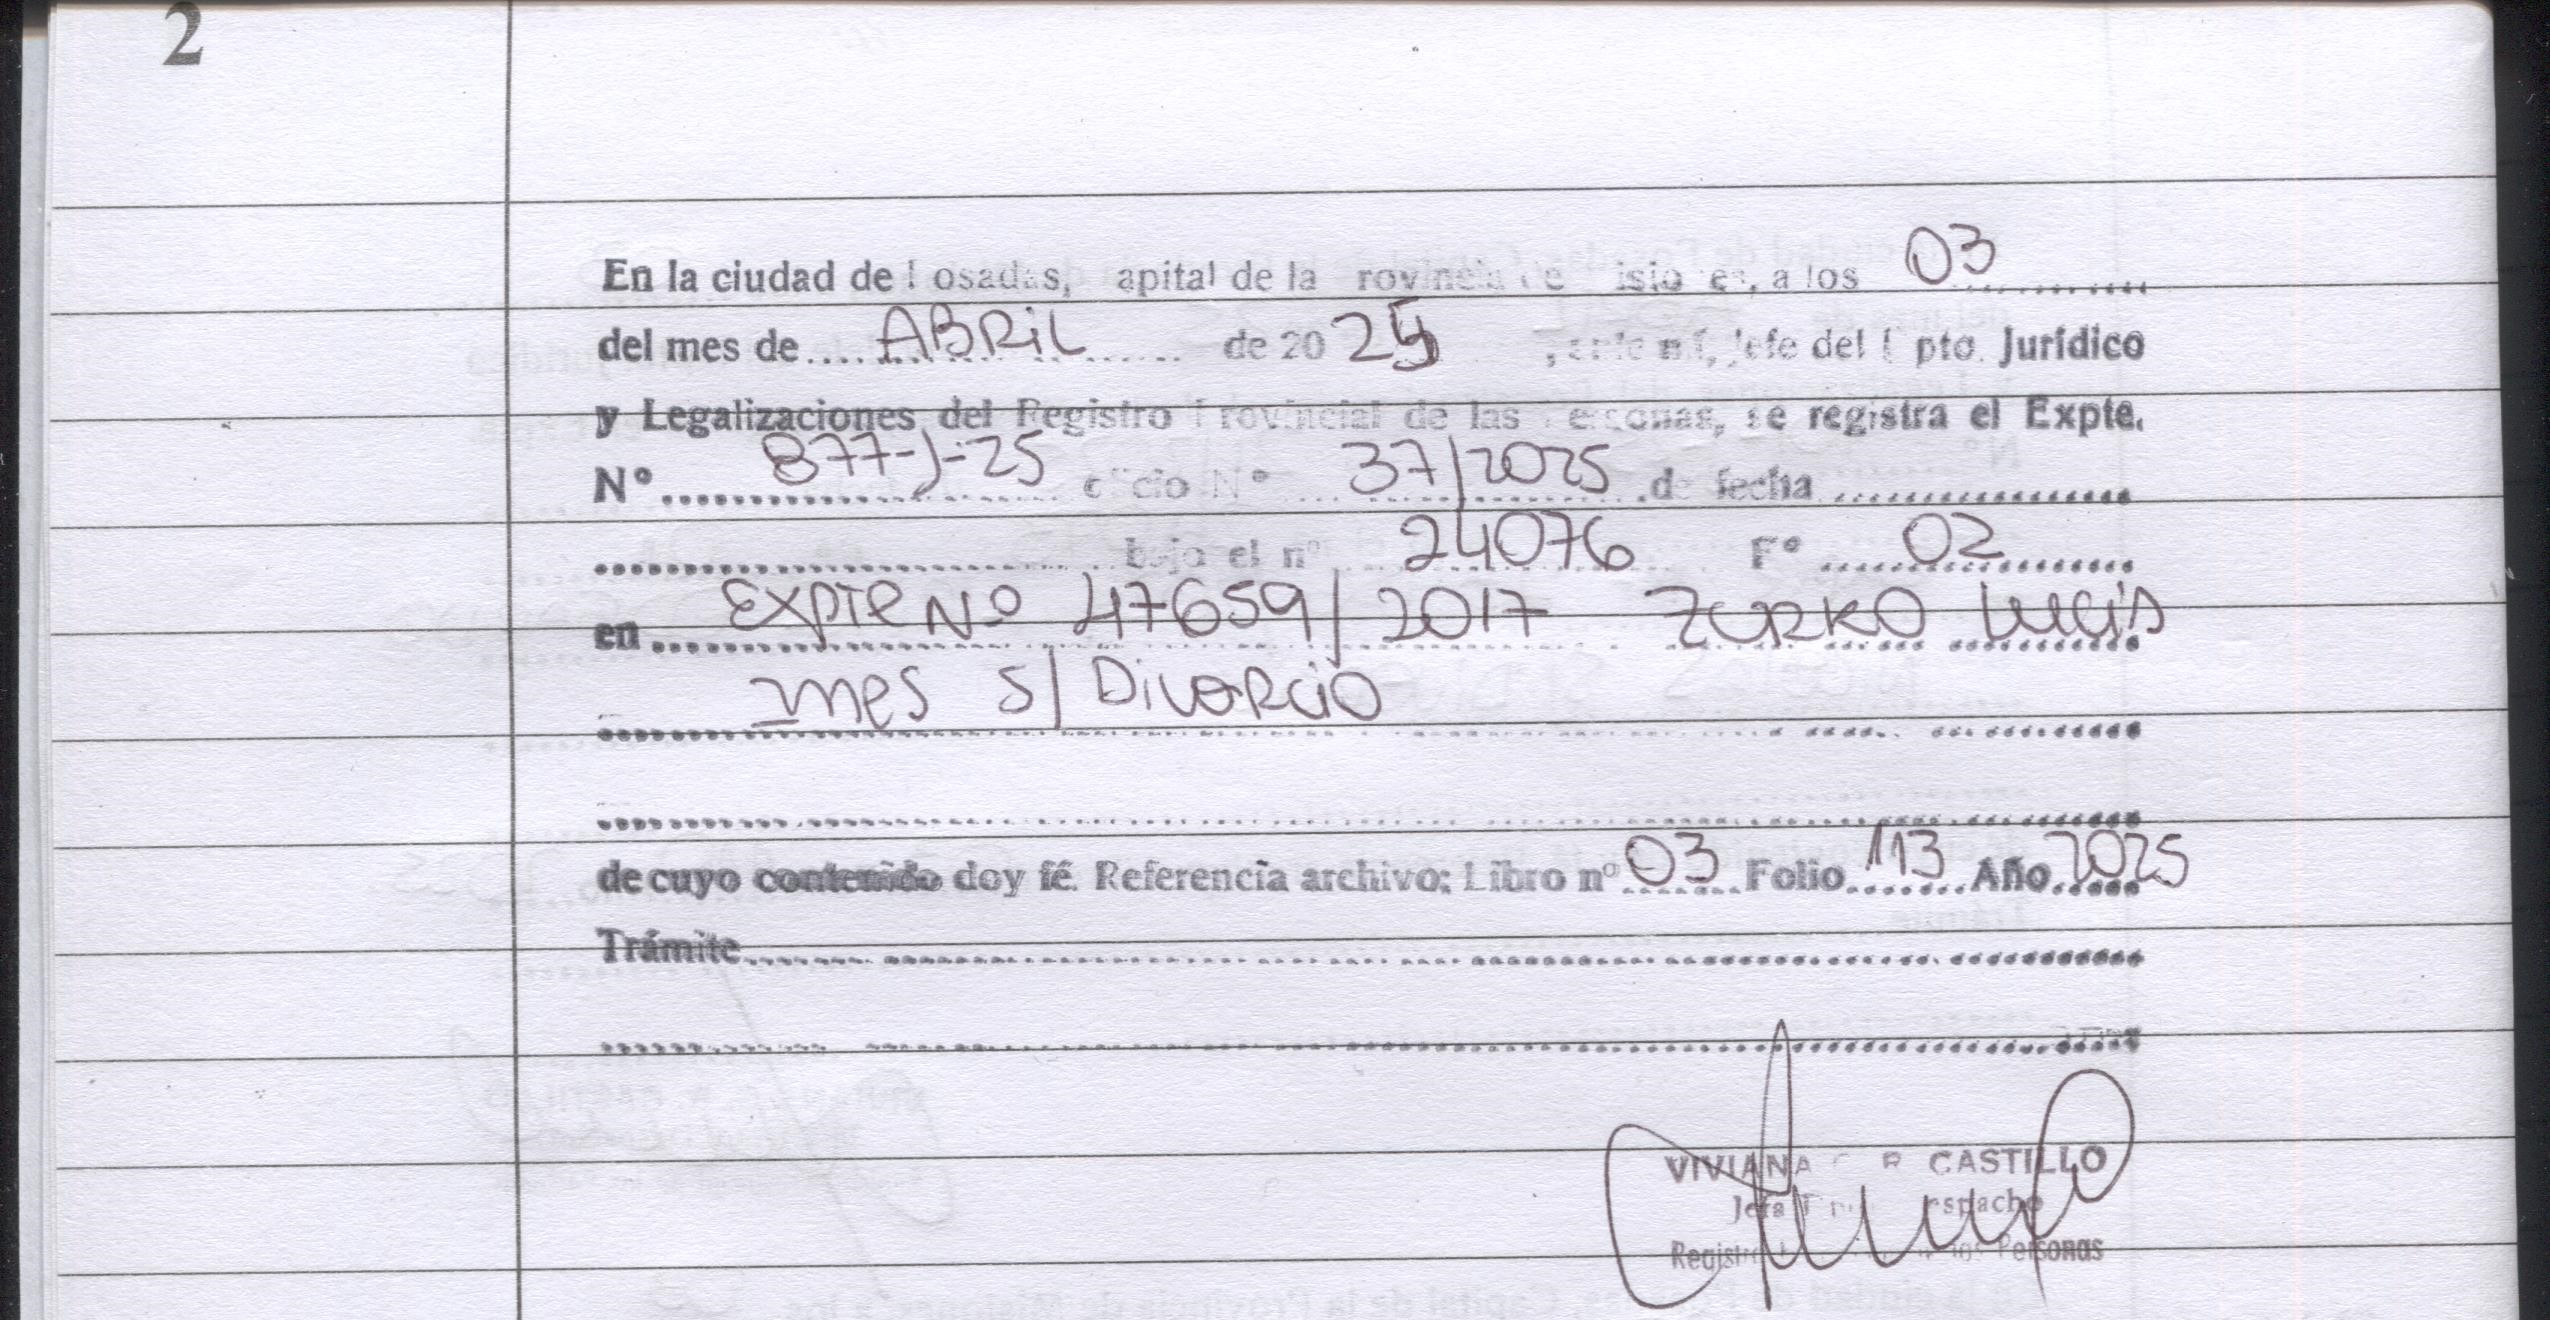 2
En la ciudad de Posadas, Capital de la Provincia de Misiones, a los 03
del mes de .... ABRIL ...... de 20 25 , ante mí, Jefe del Dpto. Jurídico
y Legalizaciones del Registro Provincial de las Personas, se registra el Expte.
N° 877-J-25 oficio N° 37/2025 de fecha
bajo el n° 24076 F° 02
en EXPTE Nº 47659/2017 ZURKO
Ines S/ Divorcio
de cuyo contenido doy fé. Referencia archivo: Libro n° 03 Folio 113 Año 2025
Trámite
VIVIANA CASTILLO
Jefa Despacho
Registro de las Personas